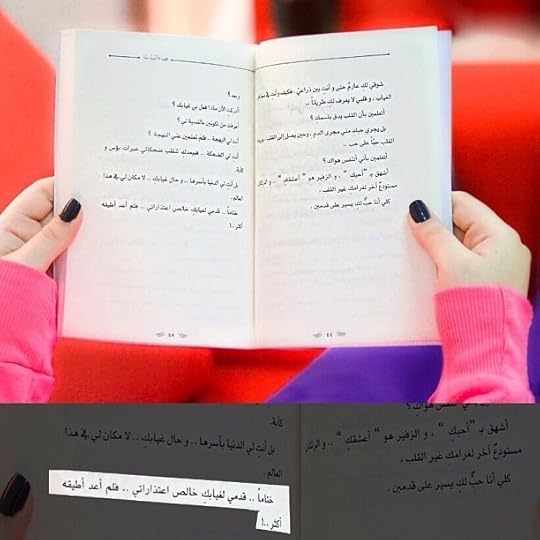 شوقي لكِ عارمٌ حتى و أنتِ بين ذراعيّ .. فكيف وأنتِ في
الغياب .. و قلبي لا يعرف لكِ طريقاً ..
أتعلمين بأن القلب يدق بأسمك ؟
بل يجري حبكِ مني مجرى الدم .. وحين يصل إلى القلب
القلب حبّاً على حب ..
أتعلمين بأني أتنفس هواك ؟
أشهق بـ "أحبكِ" .. و الزفير هو "أعشقكِ" .. و الرئتان
مستودعٌ آخر لغرامك غير القلب .
كلي أنا حبٌّ لكِ يسير على قدمين .
و بعد ؟
أدركت الآن ماذا فعل بي غيابكِ ؟
أعرفت من تكونين بالنسبة لي ؟
أنتِ لي البهجة .. فلم تطمعين علي البهجة ؟
أنتِ لي الضحكة .. فببعدكِ تنقلب ضحكاتي عبرات بؤس و
كآبة.
بل أنتِ لي الدنيا بأسرها .. و حال غيابكِ .. لا مكان لي في هذا
العالم .
ختاماً .. قدمي لغيابكِ خالص اعتذاراتي .. فلم أعد أطيقه
أكثر ..!
كآبة.
بل أنتِ لي الدنيا بأسرها .. و حال غيابكِ .. لا مكان لي في هذا
العالم .
ختاماً .. قدمي لغيابكِ خالص اعتذاراتي .. فلم أعد أطيقه
أكثر ..!
أتعلمين بأني أتنفس هواك ؟
أشهق بـ "أحبكِ" .. و الزفير هو "أعشقكِ" .. و الرئتان
مستودعٌ آخر لغرامك غير القلب .
كلي أنا حبٌّ لكِ يسير على قدمين .